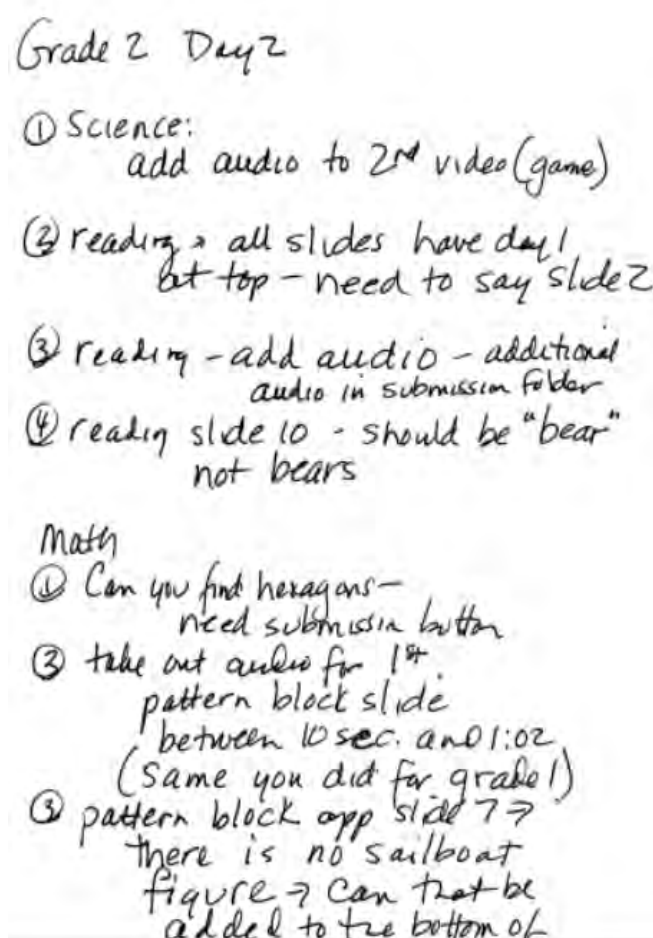 Grade 2 Day 2
① Science:
add audio to 2nd video (game)
② reading, all slides have day 1
at top - need to say slide 2
③ reading - add audio - additional
audio in submission folder
④ reading slide 10 - should be "bear"
not bears
Math
① Can you find hexagons -
need submission button
② take out audio for 1st
pattern block slide
between 10 sec. and 1:02
(same you did for grade 1)
③ pattern block app slide 7 →
there is no sailboat
figure → can that be
added to the bottom of